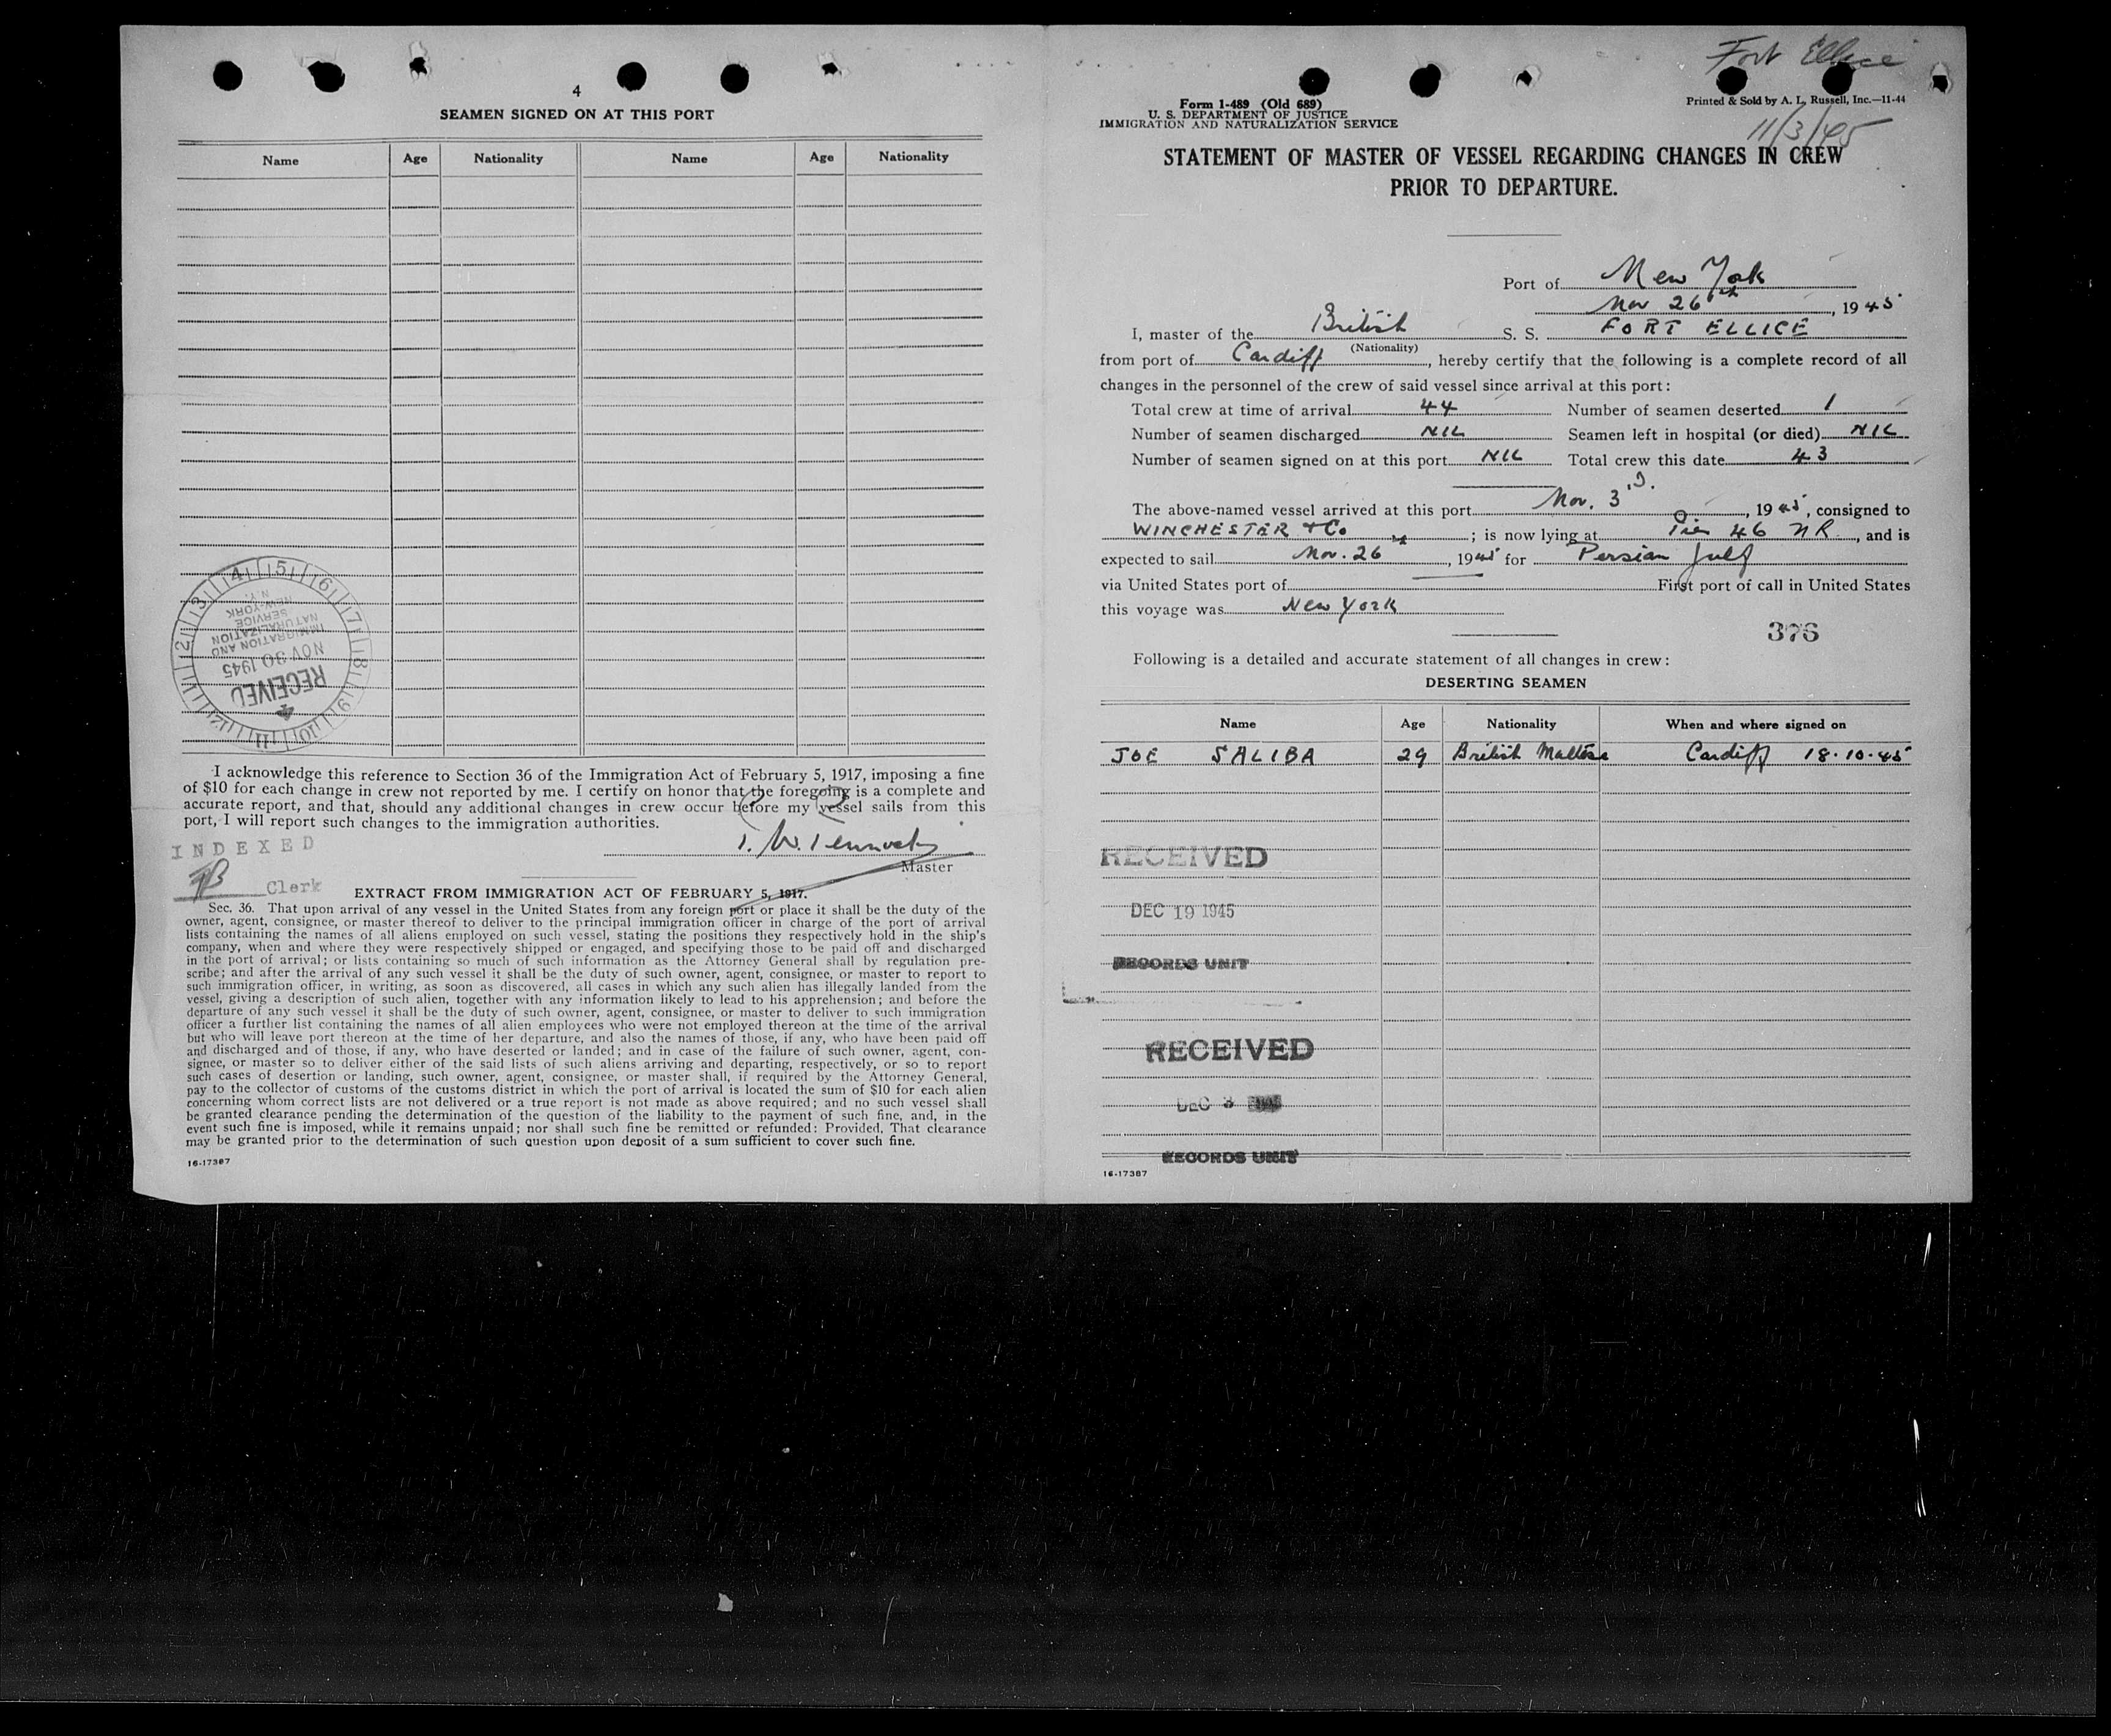 4
SEAMEN SIGNED ON AT THIS PORT
Name Age Nationality Name Age Nationality
4 5 6 7 8 9 10 11 12 1 2 3
RECEIVED
NOV 30 1945
IMMIGRATION AND
NATURALIZATION
SERVICE
NEW-YORK
N.Y.
I acknowledge this reference to Section 36 of the Immigration Act of February 5, 1917, imposing a fine
of $10 for each change in crew not reported by me. I certify on honor that the foregoing is a complete and
accurate report, and that, should any additional changes in crew occur before my vessel sails from this
port, I will report such changes to the immigration authorities.
INDEXED
Master
Clerk
EXTRACT FROM IMMIGRATION ACT OF FEBRUARY 5, 1917.
Sec. 36. That upon arrival of any vessel in the United States from any foreign port or place it shall be the duty of the
owner, agent, consignee, or master thereof to deliver to the principal immigration officer in charge of the port of arrival
lists containing the names of all aliens employed on such vessel, stating the positions they respectively hold in the ship's
company, when and where they were respectively shipped or engaged, and specifying those to be paid off and discharged
in the port of arrival; or lists containing so much of such information as the Attorney General shall by regulation pre-
scribe; and after the arrival of any such vessel it shall be the duty of such owner, agent, consignee, or master to report to
such immigration officer, in writing, as soon as discovered, all cases in which any such alien has illegally landed from the
vessel, giving a description of such alien, together with any information likely to lead to his apprehension; and before the
departure of any such vessel it shall be the duty of such owner, agent, consignee, or master to deliver to such immigration
officer a further list containing the names of all alien employees who were not employed thereon at the time of the arrival
but who will leave port thereon at the time of her departure, and also the names of those, if any, who have been paid off
and discharged and of those, if any, who have deserted or landed; and in case of the failure of such owner, agent, con-
signee, or master so to deliver either of the said lists of such aliens arriving and departing, respectively, or so to report
such cases of desertion or landing, such owner, agent, consignee, or master shall, if required by the Attorney General,
pay to the collector of customs of the customs district in which the port of arrival is located the sum of $10 for each alien
concerning whom correct lists are not delivered or a true report is not made as above required; and no such vessel shall
be granted clearance pending the determination of the question of the liability to the payment of such fine, and, in the
event such fine is imposed, while it remains unpaid; nor shall such fine be remitted or refunded: Provided, That clearance
may be granted prior to the determination of such question upon deposit of a sum sufficient to cover such fine.
16-17387
Fort Ellice
Form 1-489 (Old 689)
U. S. DEPARTMENT OF JUSTICE
IMMIGRATION AND NATURALIZATION SERVICE
Printed & Sold by A. L. Russell, Inc.—11-44
11/3/45
STATEMENT OF MASTER OF VESSEL REGARDING CHANGES IN CREW
PRIOR TO DEPARTURE.
Port of New York
Nov 26th, 1945
I, master of the British S. S. FORT ELLICE
(Nationality)
from port of Cardiff, hereby certify that the following is a complete record of all
changes in the personnel of the crew of said vessel since arrival at this port:
Total crew at time of arrival 44 Number of seamen deserted 1
Number of seamen discharged NIL Seamen left in hospital (or died) NIL
Number of seamen signed on at this port NIL Total crew this date 43
The above-named vessel arrived at this port Nov. 3rd, 1945, consigned to
WINCHESTER + Co; is now lying at Pier 46 NR., and is
expected to sail Nov. 26th, 1945 for Persian Gulf
via United States port of First port of call in United States
this voyage was New York
376
Following is a detailed and accurate statement of all changes in crew:
DESERTING SEAMEN
Name Age Nationality When and where signed on
JOE SALIBA 29 British Maltese Cardiff 18.10.45
RECEIVED
DEC 19 1945
RECORDS UNIT
RECEIVED
DEC 3
RECORDS UNIT
16-17387